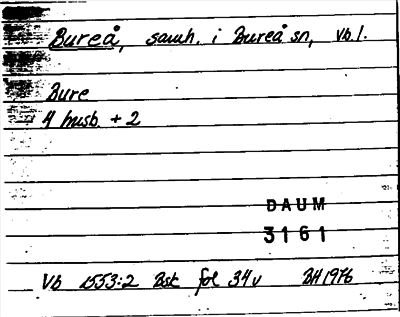 Bureå, samh. i Bureå sn, Vb l.
Bure
4 husb. + 2
DAUM
3161
Vb 1553:2 Bsk fol 34v BH 1976